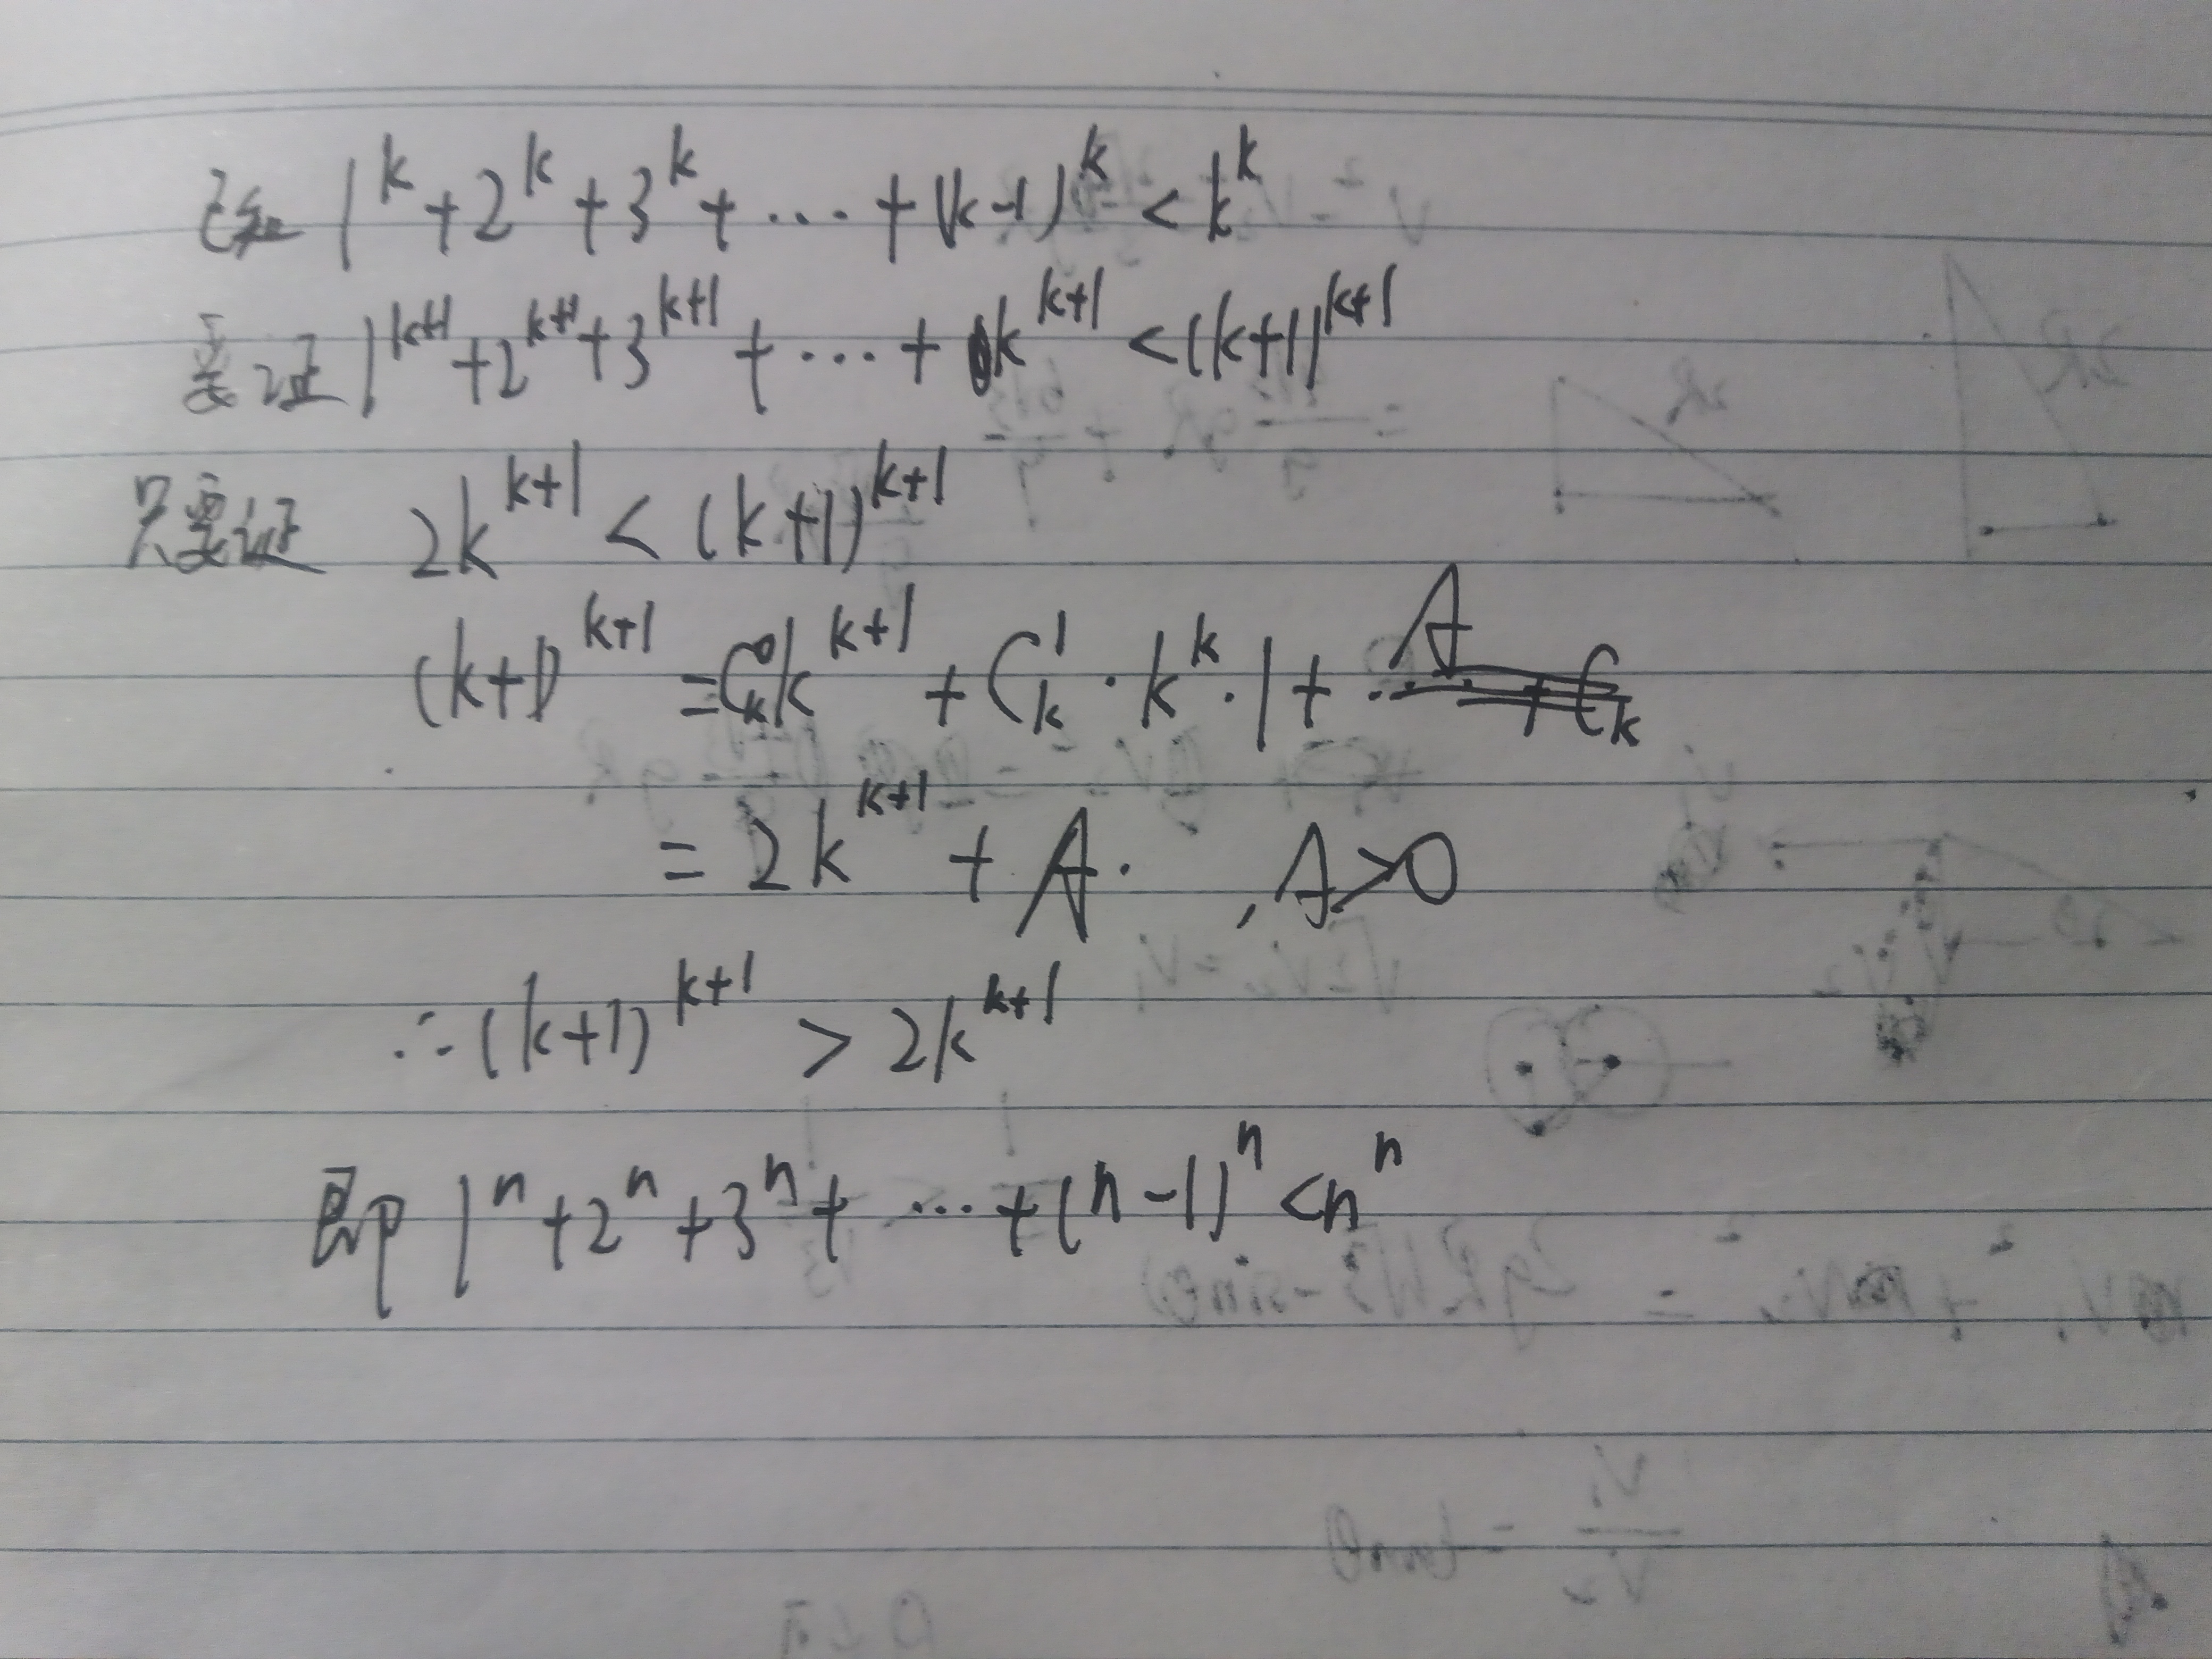 已知 1^k+2^k+3^k+…+(k-1)^k<k^k
要证 1^{k+1}+2^{k+1}+3^{k+1}+…+k^{k+1}<(k+1)^{k+1}
只要证 2k^{k+1}<(k+1)^{k+1}
(k+1)^{k+1}=C_k^0k^{k+1}+C_k^1·k^k·1+A
=2k^{k+1}+A. ,A>0
∴(k+1)^{k+1}>2k^{k+1}
即 1^n+2^n+3^n+…+(n-1)^n<n^n